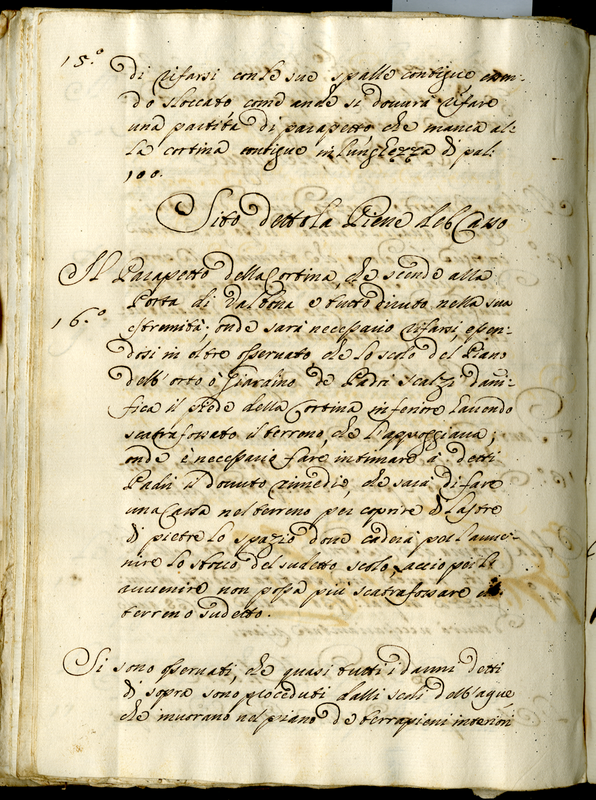 15.º di rifarsi con le sue spalle contigue essen-
do sboccato come anche si dovrà rifare
una partita di parapetto che manca al-
la cortina contigue in lunghezza di pal:
100.
Sito detto la Pieve del Caso
Il Parapetto della Cortina, che scende alla
Porta di Dalbona e tutto diruto nella sua
16.º estremità; onde sarà necessario rifarsi, essen-
dosi in oltre osservato, che lo scolo del Piano
dell'orto ò Giardino de Padri Scalzi dani-
fica il piede della Cortina inferiore havendo
scatrafossato il terreno, che l'appoggiava;
onde è necessario fare intimare à detti
Padri il dovuto rimedio, che sarà di fare
una Cassa nel terreno per coprire di lastre
di pietre lo spazio dove caderà per l'avve-
nire lo sbocco del sudetto scolo, acciò per l'
avvenire non possa più scatrafossare il
terreno sudetto.
Si sono osservati, che quasi tutti i danni detti
di sopra sono proceduti dalli scoli dell'ague
che muorano nel piano de terrapieni interiori